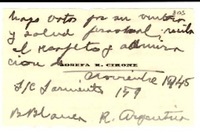 hago votos por su ventura
y salud personal, reciba
el respeto y admira
ción de
JOSEFA M. CIRONE
Noviembre 1945
S/C Sarmiento 159
B. Blanca R. Argentina